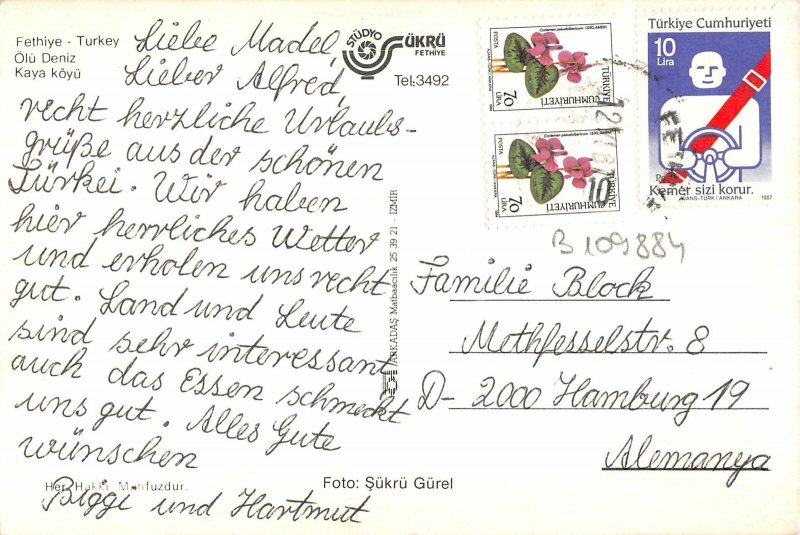 Fethiye - Turkey
Ölü Deniz
Kaya köyü
STÜDYO ŞÜKRÜ
FETHİYE
Tel:3492
Liebe Madel,
Lieber Alfred,
recht herzliche Urlaubs-
grüße aus der schönen
Türkei. Wir haben
hier herrliches Wetter
und erholen uns recht
gut. Land und Leute
sind sehr interessant
auch das Essen schmeckt
uns gut. Alles Gute
wünschen
Biggi und Hartmut
Her Hakkı Mahfuzdur.
Foto: Şükrü Gürel
ARKADAŞ Matbaacılık 25 39 21 - İZMİR
Cyclamen pseudoibericum (SIKLAMEN)
POSTA
TÜRKİYE
CUMHURİYETİ
70
LİRA
Cyclamen pseudoibericum (SIKLAMEN)
POSTA
TÜRKİYE
CUMHURİYETİ
70
LİRA
Türkiye Cumhuriyeti
10
Lira
Kemer sizi korur.
AJANS-TÜRK / ANKARA 1987
B 109884
Familie Block
Methfesselstr. 8
D-2000 Hamburg 19
Alemanya